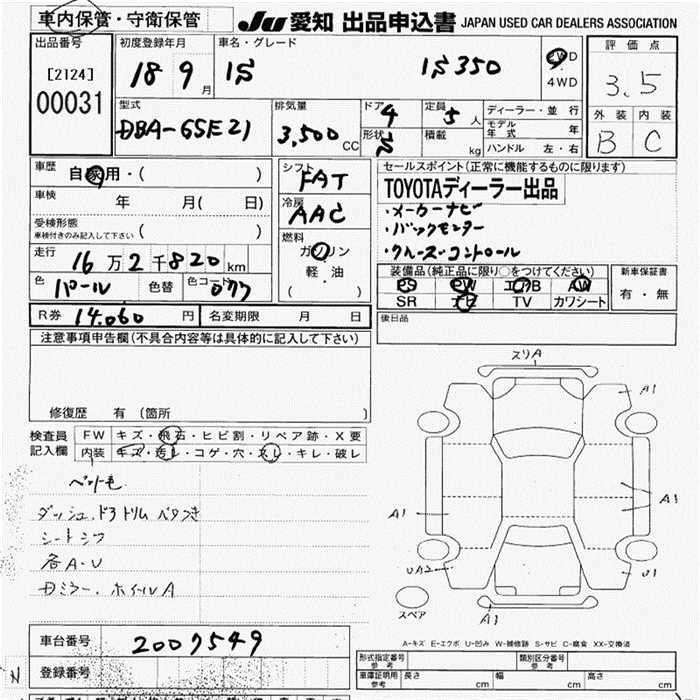 車内保管・守衛保管
JU 愛知 出品申込書 JAPAN USED CAR DEALERS ASSOCIATION
出品番号
[2124]
00031
初度登録年月
18 9月
車名・グレード
IS IS350
2WD
・
4WD
評価点
3.5
外装 内装
B C
型式
DBA-GSE21
排気量
3,500 CC
ドア 4
形状 S
定員 5 人
積載 kg
ディーラー・並行
モデル年式 年
ハンドル 左・右
車歴
自家用・( )
車検
年 月( 日)
受検形態
車検付きのみ記入して下さい ( )
走行
16万2千820km
色 パール 色替 色コード 077
シフト
FAT
冷房
AAC
燃料
ガソリン
軽・油
( )
セールスポイント(正常に機能するものに限ります)
TOYOTAディーラー出品
・メーカーナビ
・バックモニター
・クルーズコントロール
装備品(純正品に限り○をつけてください)
PS PW エアB AW
SR ナビ TV カワシート
新車保証書
有・無
R券 14,060 円 名変期限 月 日
後日品
注意事項申告欄(不具合内容等は具体的に記入して下さい)
修復歴 有(箇所 )
検査員記入欄
FW キズ・飛石・ヒビ割・リペア跡・X要
内装 キズ・汚レ・コゲ・穴・スレ・キレ・破レ
ダッシュ.ドアトリム ベタつき
シートシワ
各A・U
ミラー.ホイルA
スリA
A1
A1
A1
UA2
U1
A1
スペア
A-キズ E-エクボ U-凹み W-補修跡 S-サビ C-腐食 XX-交換済
車台番号 2007549
登録番号
形式指定番号 参考
類別区分番号 参考
車庫証明用 参考 長さ cm 幅 cm 高さ cm